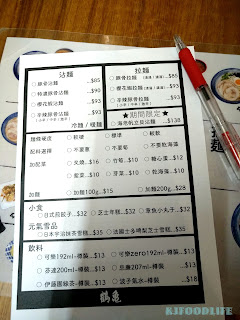 沾麵
拉麵
豚骨沾麵 $85
豚骨拉麵 $85
特濃豚骨沾麵 $90
櫻花蝦拉麵 $93
櫻花蝦沾麵 $93
辛辣豚骨拉麵 $93
辛辣豚骨沾麵 $93
★期間限定★
海膽帆立貝沾麵 $138
冷麵 / 暖麵
麵條硬度
較硬
標準
較軟
配料選擇
不要蔥
不要筍
不要乾海藻
加配菜
火燒 $16
竹筍 $10
糖心蛋 $12
紫菜 $10
加麵
加麵100g $15
加麵200g $28
小食
日式煎餃子 $32
芝士年糕 $32
章魚小丸子 $32
元氣雪品
日本宇治抹茶雪糕 $35
法國士多啤梨芝士雪糕 $35
飲料
可樂192ml-樽裝 $13
可樂zero192ml-樽裝 $13
芬達200ml-樽裝 $13
忌廉207ml-樽裝 $13
伊藤園綠茶-樽裝 $13
波子氣水-樽裝 $18
鶴亀
KIFOODLIFE